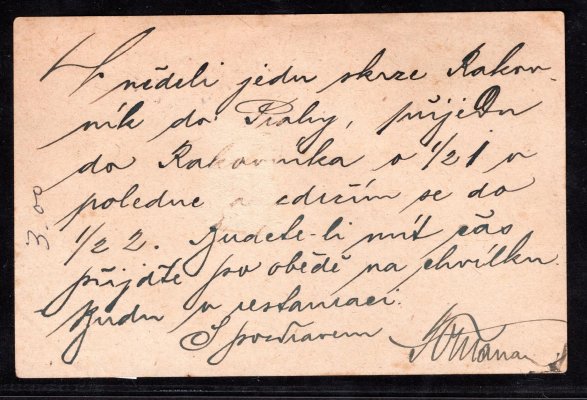 V neděli jedu skrze Rakov-
ník do Prahy, přijedu
do Rakovníka o 1/2 1 v
poledne a zdržím se do
1/2 2. Budete-li mít čas
přijďte po obědě na chvilku.
Budu v restauraci.
S pozdravem
3.00